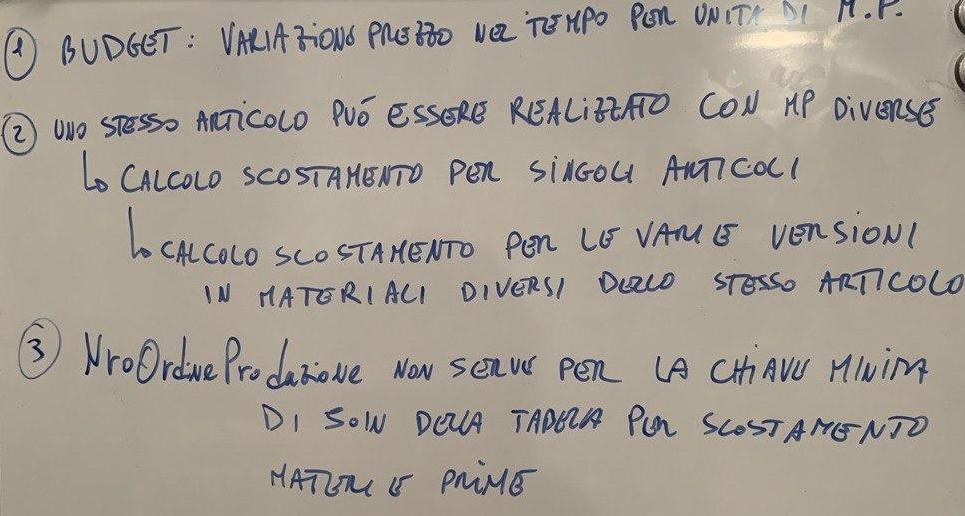 1 BUDGET: VARIAZIONE PREZZO NEL TEMPO PER UNITÀ DI M.P.
2 UNO STESSO ARTICOLO PUÓ ESSERE REALIZZATO CON MP DIVERSE
↳ CALCOLO SCOSTAMENTO PER SINGOLI ARTICOLI
↳ CALCOLO SCOSTAMENTO PER LE VARIE VERSIONI
IN MATERIALI DIVERSI DELLO STESSO ARTICOLO
3 NroOrdineProduzione NON SERVE PER LA CHIAVE MINIMA
DI JOIN DELLA TABELLA PER SCOSTAMENTO
MATERIE PRIME